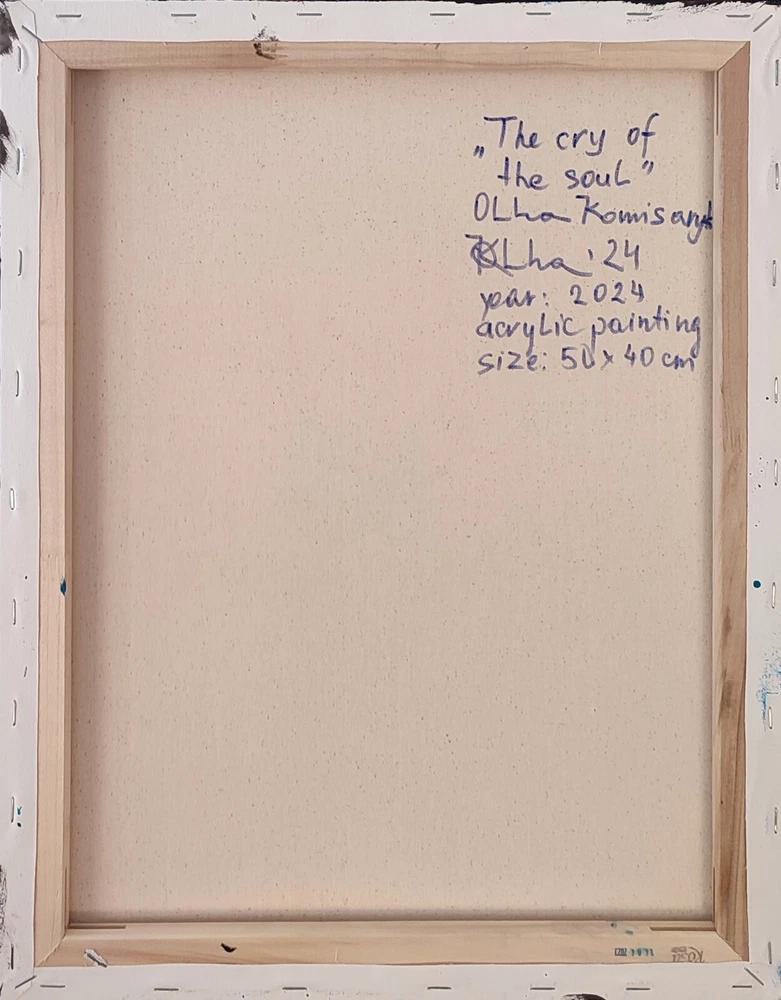 „The cry of
the soul”
Olha Komisaryk
Olha '24
year: 2024
acrylic painting
size: 50x40 cm